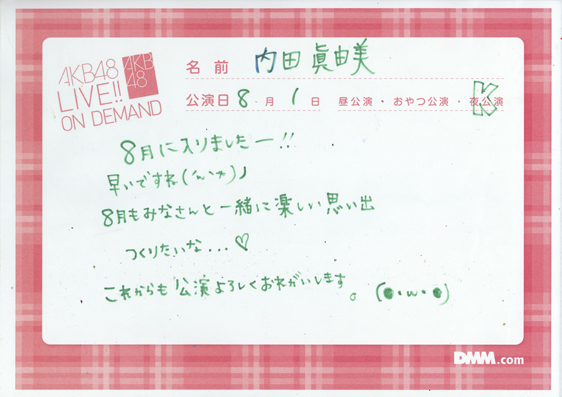 AKB48
LIVE!!
ON DEMAND
AKB
48
名前 内田眞由美
公演日 8月1日 昼公演・おやつ公演・夜公演
K
8月に入りましたー!!
早いですね
8月もみなさんと一緒に楽しい思い出
つくりたいな...♡
これからも公演よろしくおねがいします。(●・ω・●)
DMM.com